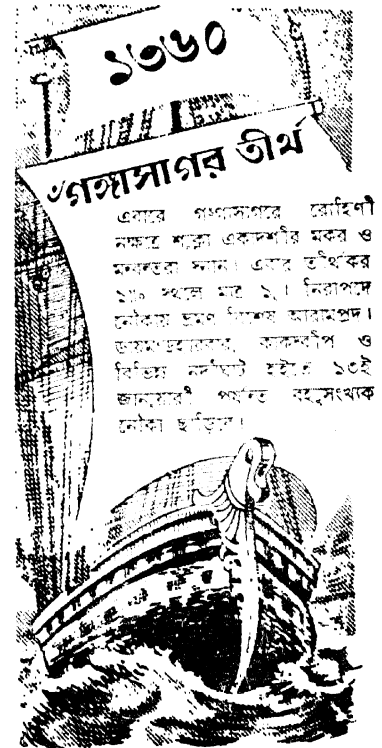 ১৩৬০
৺গঙ্গাসাগর তীর্থ
এবারে গংগাসাগরে রোহিণী
নক্ষত্র শুক্লা একাদশীর মকর ও
মন্বন্তরা স্নান। এবার তীর্থকর
স্থলে মাত্র ১৲। নিরাপদে
নৌকায় ভ্রমণ বিশেষ আরামপ্রদ।
ডায়মণ্ডহারবার, কাকদ্বীপ ও
বিভিন্ন নদীঘাট হইতে ১৩ই
জানুয়ারী পর্যন্ত বহুসংখ্যক
নৌকা ছাড়িবে।